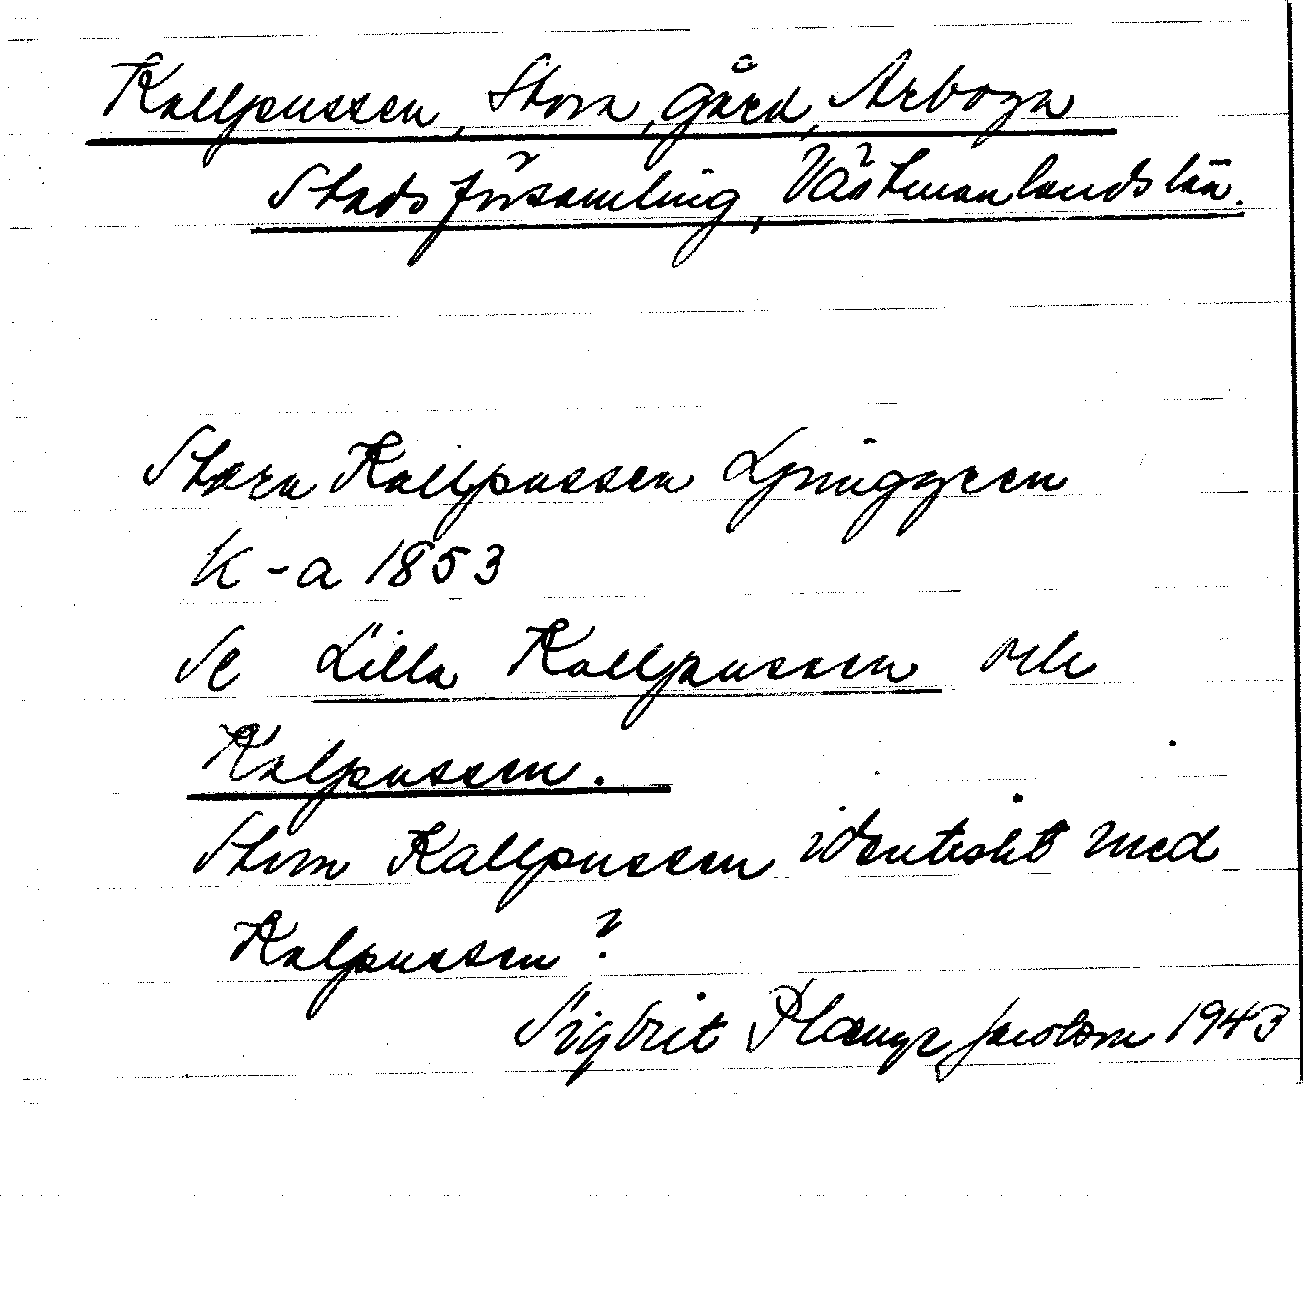 Kallpussen, Stora, gård, Arboga
Stadsförsamling, Västmanlands län.
Stora Kallpussen Ljunggren
k-a 1853
Se Lilla Kallpussen och
Kalpussen.
Stora Kallpussen identiskt med
Kalpussen?
Sigbrit Plænge Jacobson 1943